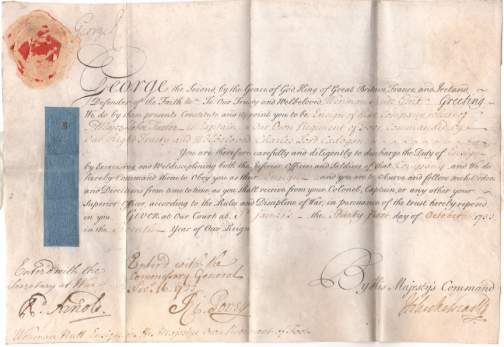 George
George the Second, by the Grace of God King of Great Britain, France and Ireland,
Defender of the Faith &c. To Our Trusty and Welbeloved Gent. Greeting.
We do by these presents Constitute and Appoint you to be Ensign of that Company whereof
is Captain in Our Own Regiment of Foot Commanded by
Our Right Trusty and Welbeloved Charles Lord Cadogan
You are therefore carefully and diligently to discharge the Duty of Ensign
by Exercising and Welldisciplining both the Inferior Officers and Soldiers of that Company and We do
hereby Command them to Obey you as their Ensign and you are to Observe and follow such Orders
and Directions from time to time as you shall receive from your Colonel, Captain, or any other your
Superior Officer, according to the Rules and Discipline of War, in pursuance of the trust hereby reposed
in you. Given at Our Court at St. James's the Thirty first day of October 1733
in the Seventh Year of Our Reign.
Enter'd with the
Secretary at War
Enter'd with the
Commissary General
1733
By His Majesty's Command
Ensign in His Majesty's Own Regiment of Foot